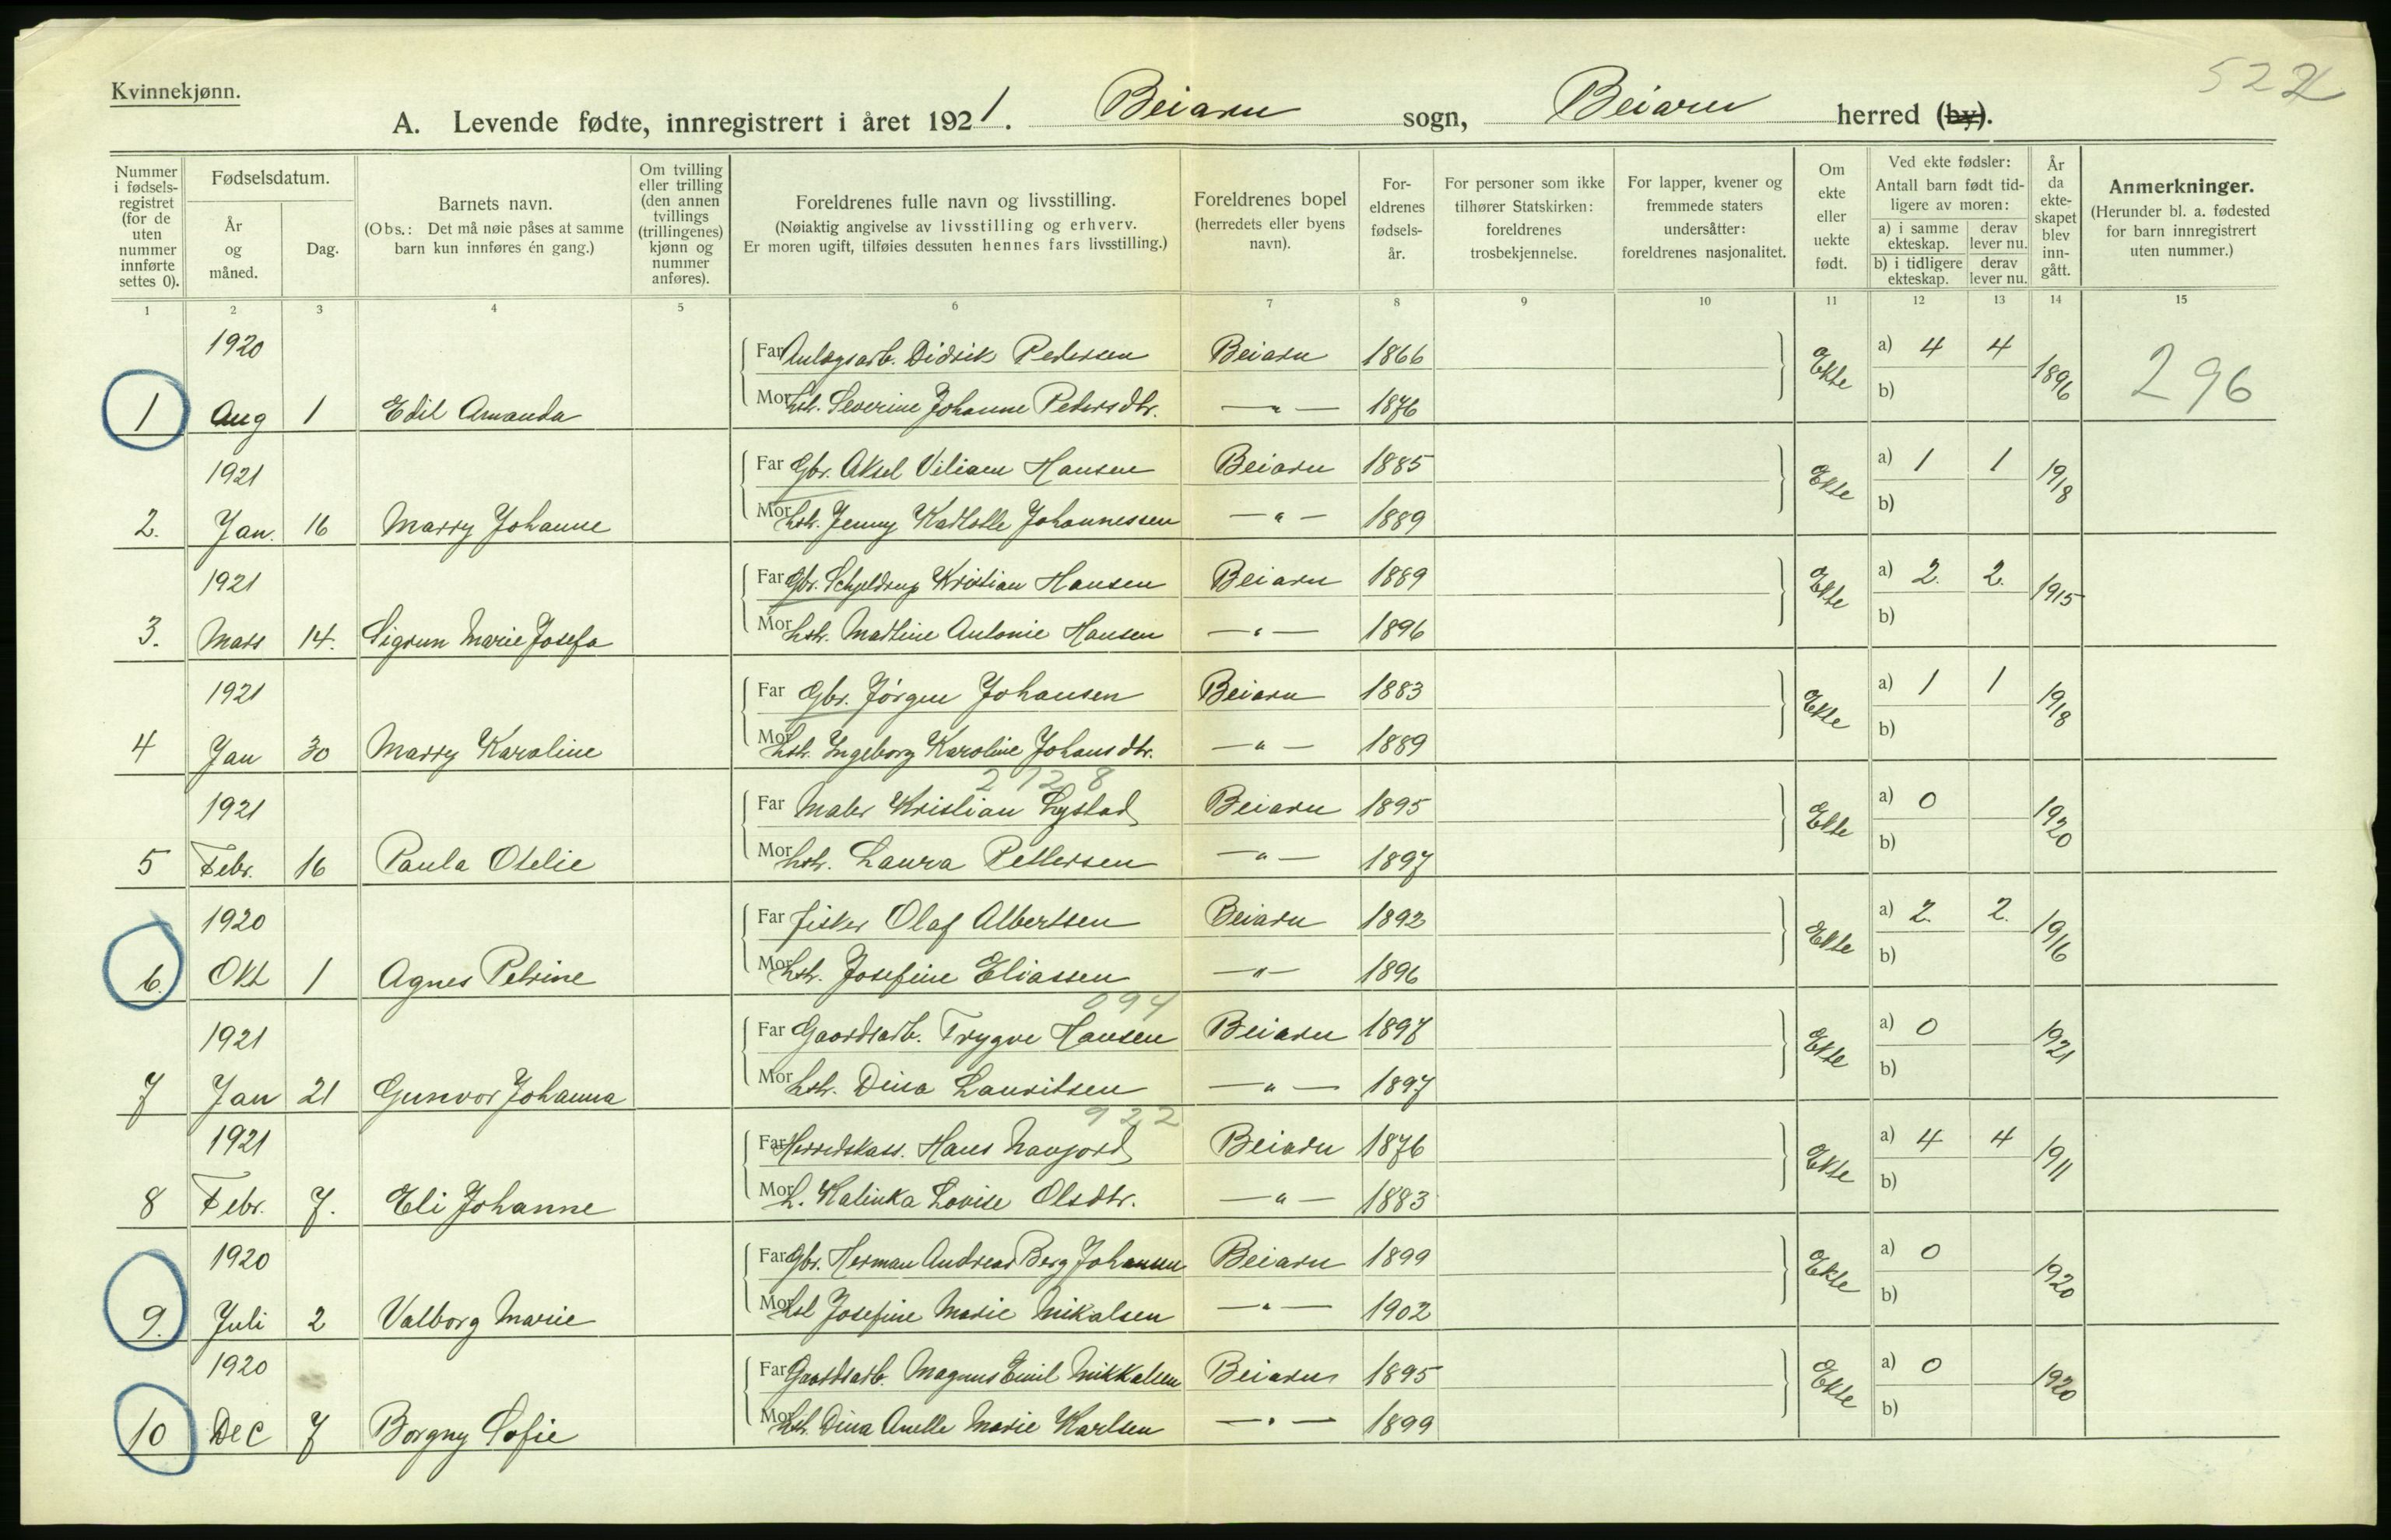 Kvinnekjønn.
522
A. Levende fødte, innregistrert i året 1921. Beiarn sogn, Beiarn herred (by).
Nummer i fødsels-registret (for de uten nummer innførte settes 0).
Fødselsdatum.
År og måned.
Dag.
Barnets navn.
(Obs.: Det må nøie påses at samme barn kun innføres én gang.)
Om tvilling eller trilling (den annen tvillings (trillingenes) kjønn og nummer anføres).
Foreldrenes fulle navn og livsstilling.
(Nøiaktig angivelse av livsstilling og erhverv.
Er moren ugift, tilføies dessuten hennes fars livsstilling.)
Foreldrenes bopel (herredets eller byens navn).
For-eldrenes fødsels-år.
For personer som ikke tilhører Statskirken: foreldrenes trosbekjennelse.
For lapper, kvener og fremmede staters undersåtter: foreldrenes nasjonalitet.
Om ekte eller uekte født.
Ved ekte fødsler:
Antall barn født tid-ligere av moren:
a) i samme ekteskap. derav lever nu.
b) i tidligere ekteskap. derav lever nu.
År da ekte-skapet blev inn-gått.
Anmerkninger.
(Herunder bl. a. fødested for barn innregistrert uten nummer.)
1 2 3 4 5 6 7 8 9 10 11 12 13 14 15
1920 Far Anlagsarb. Didrik Pedersen Beiarn 1866 Ekte a) 4 4 1896 296
1 Aug 1 Edil Amanda Mor hst. Severine Johanne Pedersdtr. — " — 1876 b)
1921 Far Gbr. Aksel Viliam Hansen Beiarn 1885 Ekte a) 1 1 1918
2. Jan. 16 Marry Johanne Mor hst. Jenny Kadlotte Johannessen — " — 1889 b)
1921 Far Gbr. Schjeldrup Kristian Hansen Beiarn 1889 Ekte a) 2. 2. 1915
3. Mars 14. Sigrun Marie Josefa Mor hst. Martine Antonie Hansen — " — 1896 b)
1921 Far Gbr. Jørgen Johansen Beiarn 1883 Ekte a) 1 1 1918
4 Jan 30 Marry Karoline Mor hst. Ingeborg Karoline Johansdtr. — " — 1889 b)
1921 Far Maler Kristian Lystad Beiarn 1895 Ekte a) 0 1920
5 Febr. 16 Paula Otelie Mor hst. Laura Pettersen — " — 1897 b)
1920 Far fisker Olaf Albertsen Beiarn 1892 Ekte a) 2. 2. 1916
6. Okt 1 Agnes Petrine Mor hst. Josefine Eliassen — " — 1896 b)
094
1921 Far Gaardsarb. Trygve Hansen Beiarn 1897 Ekte a) 0 1921
7 Jan 21 Gunvor Johanna Mor hst. Dina Lauritsen — " — 1897 b)
922
1921 Far Herredskass. Hans Navjord Beiarn 1876 Ekte a) 4 4 1911
8 Febr. 7. Eli Johanne Mor h. Kalinka Lovise Olsdtr. — " — 1883 b)
1920 Far Gbr. Herman Andreas Berg Johansen Beiarn 1899 Ekte a) 0 1920
9. Juli 2 Valborg Marie Mor hst Josefine Marie Mikalsen — " — 1902 b)
1920 Far Gaardsarb. Magnus Emil Mikkalsen Beiarn 1895 Ekte a) 0 1920
10 Dec 7 Borgny Sofie Mor hst. Dina Anelle Marie Karlsen — " — 1899 b)